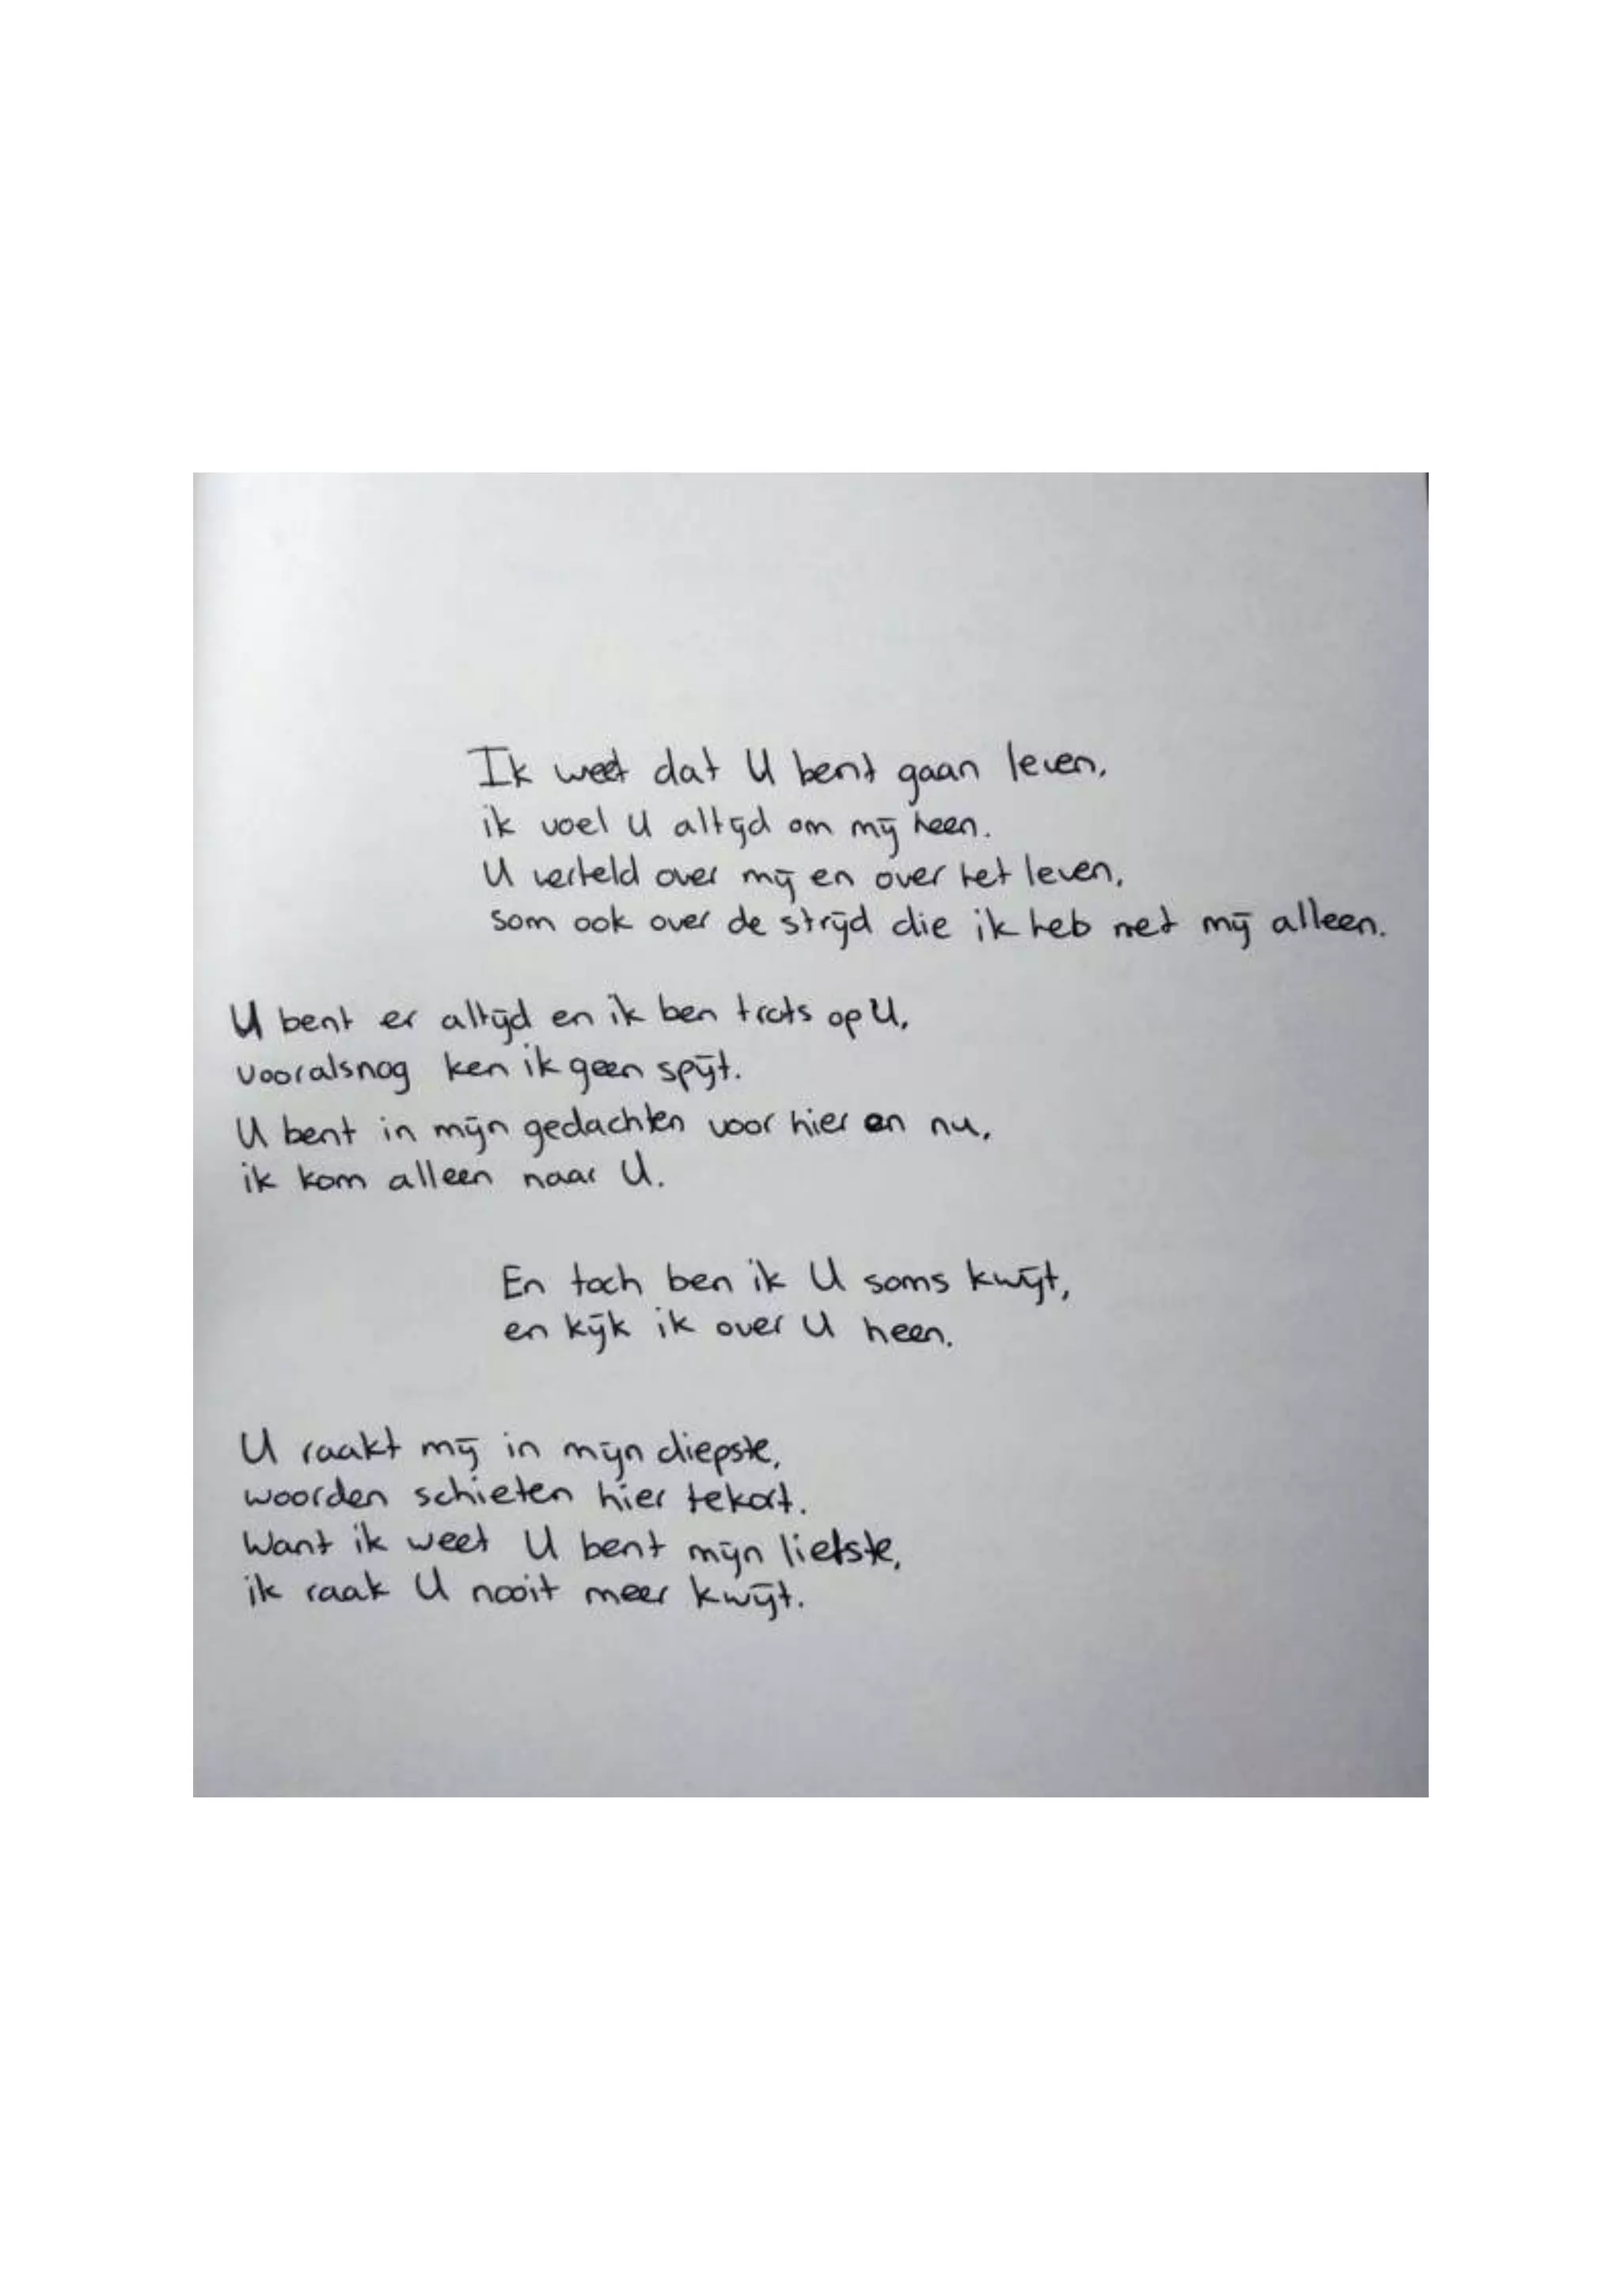 Ik weet dat U bent gaan leven,
ik voel U altijd om mij heen.
U verteld over mij en over het leven,
som ook over de strijd die ik heb met mij alleen.
U bent er altijd en ik ben trots op U,
vooralsnog ken ik geen spijt.
U bent in mijn gedachten voor hier en nu,
ik kom alleen naar U.
En toch ben ik U soms kwijt,
en kijk ik over U heen.
U raakt mij in mijn diepste,
woorden schieten hier tekort.
Want ik weet U bent mijn liefste,
ik raak U nooit meer kwijt.